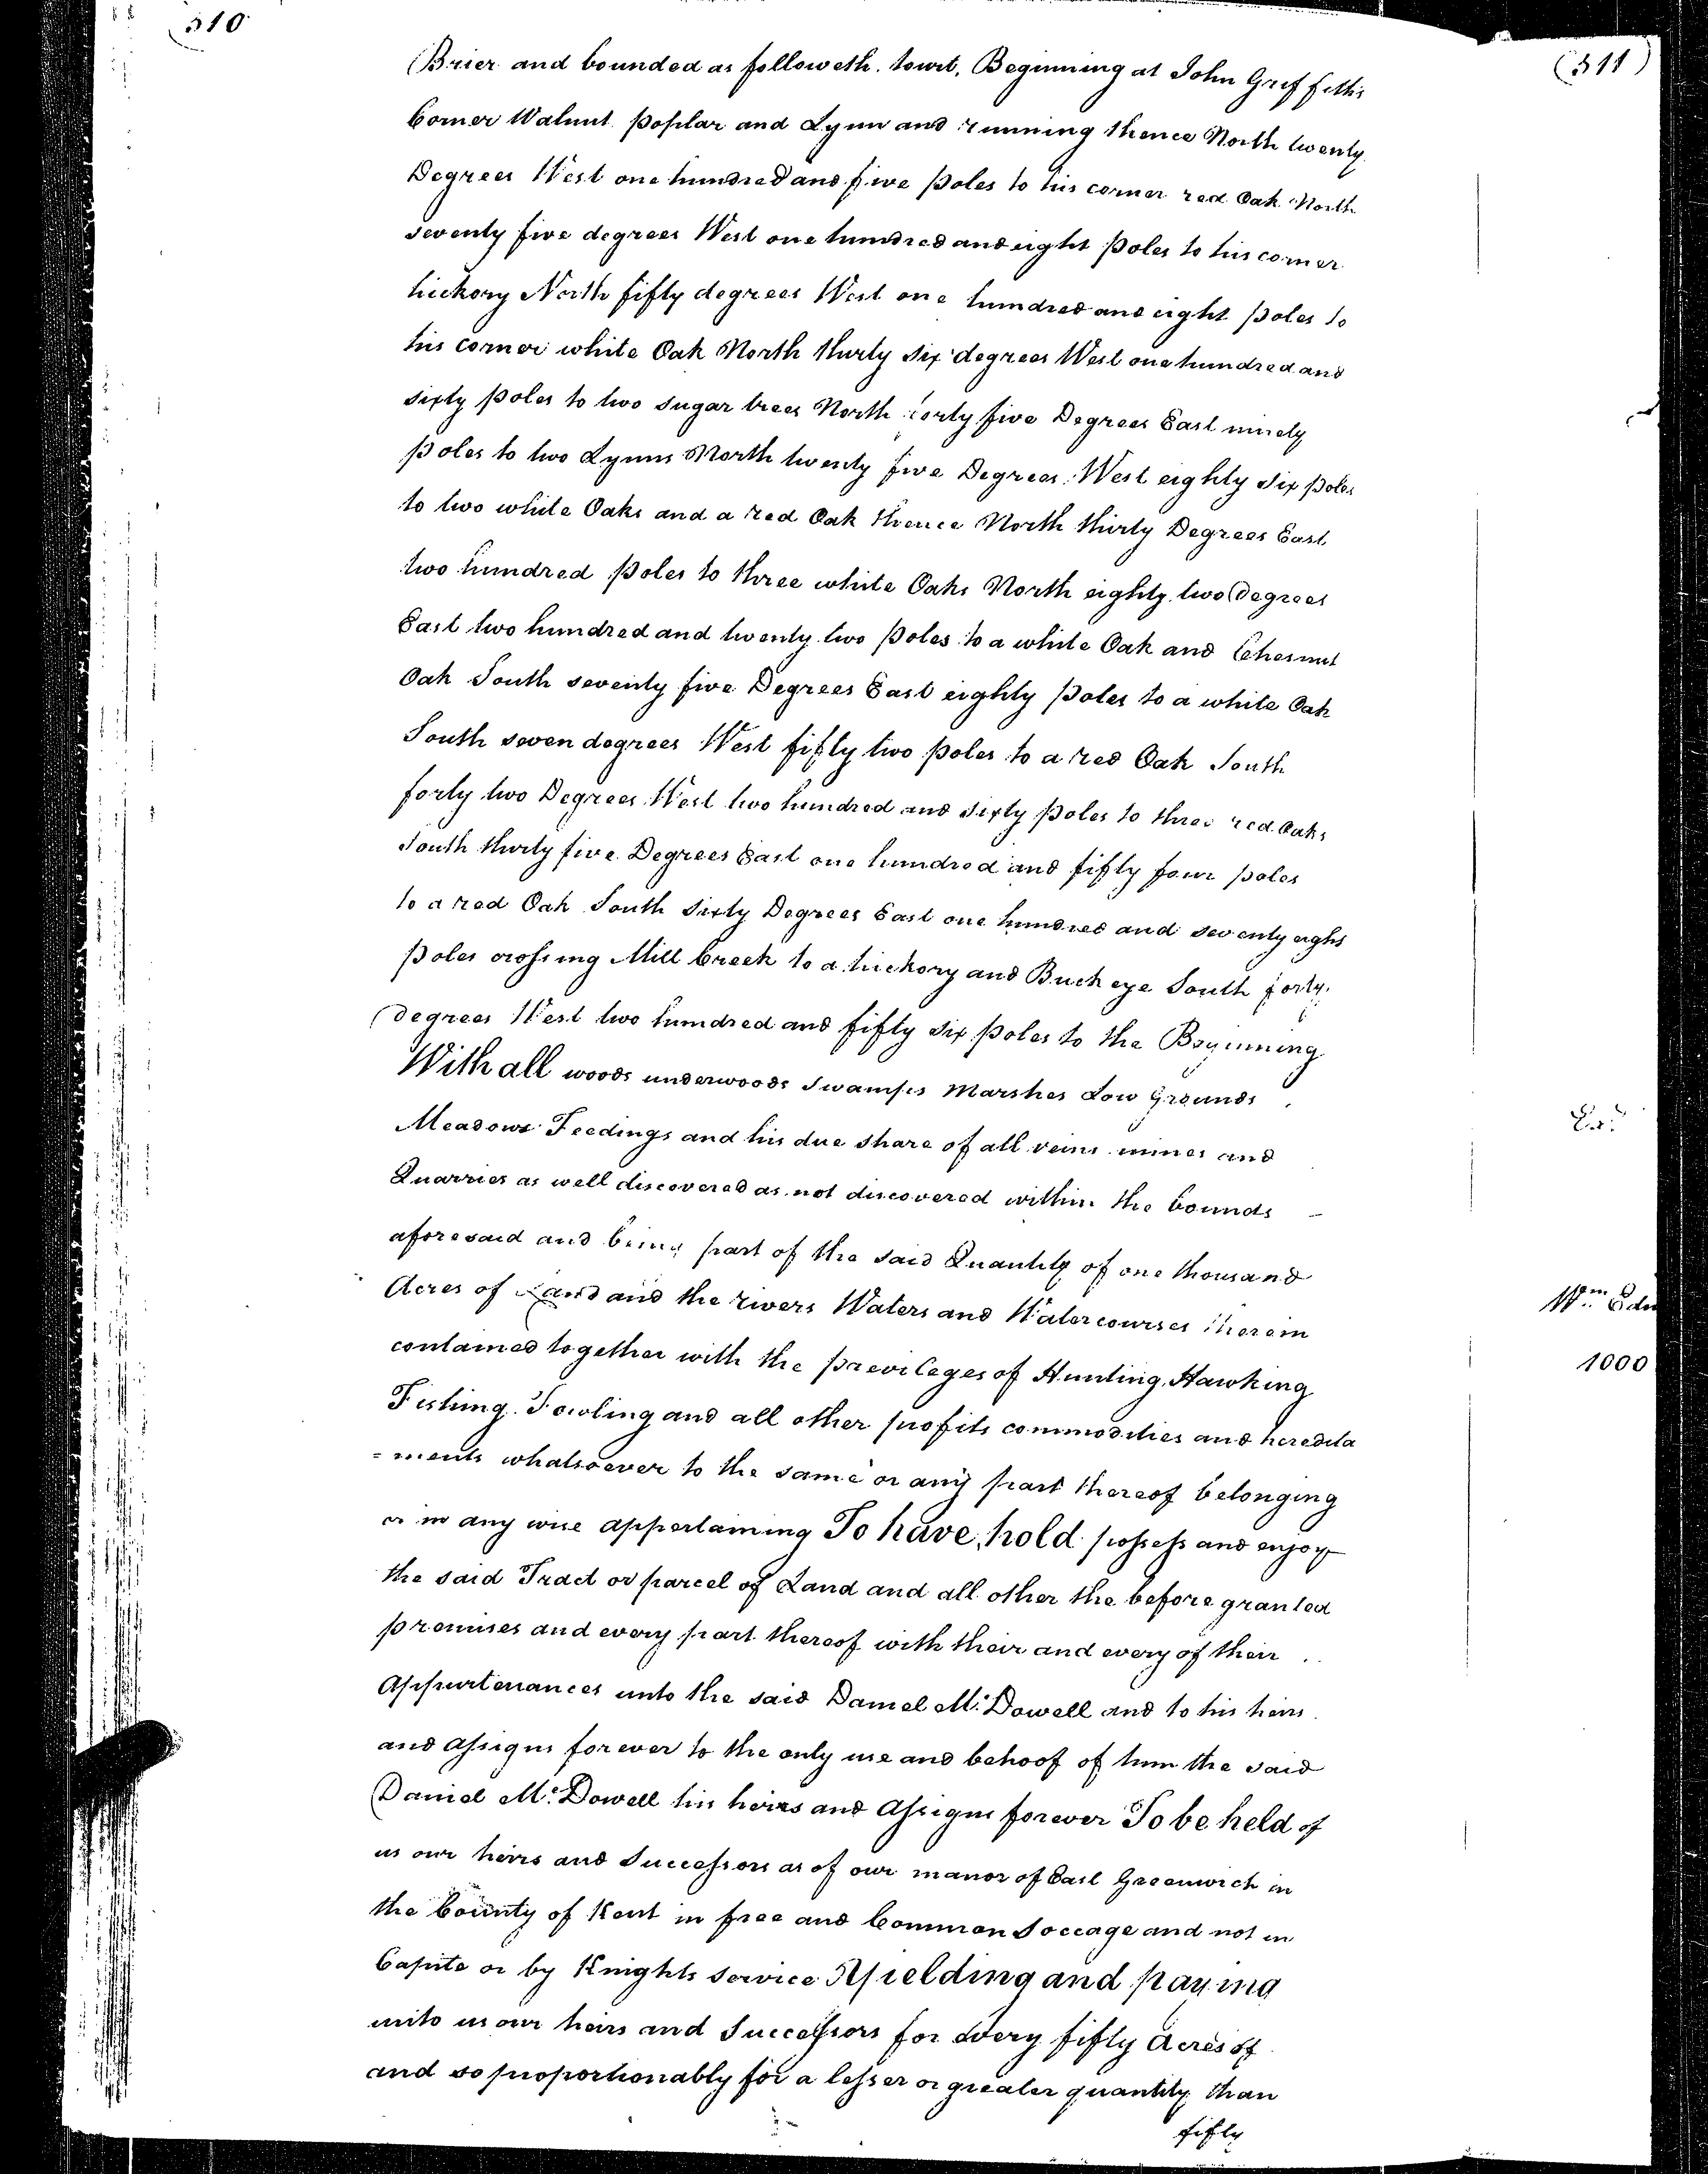 310
Brier and bounded as followeth. towit, Beginning at John Griffeth's
Corner Walnut poplar and Lynn and running thence North twenty
Degrees West one hundred and five poles to his corner red Oak North
seventy five degrees West one hundred and eight poles to his corner
hickory North fifty degrees West one hundred and eight poles to
his corner white Oak North thirty six degrees West one hundred and
sixty poles to two sugar trees North forty five Degrees East ninety
poles to two Lynns North twenty five Degrees West eighty six poles
to two white Oaks and a red Oak thence North thirty Degrees East
two hundred poles to three white Oaks North eighty two Degrees
East two hundred and twenty two poles to a white Oak and Chesnut
Oak South seventy five Degrees East eighty poles to a white Oak
South seven degrees West fifty two poles to a red Oak South
forty two Degrees West two hundred and sixty poles to three red Oaks
South thirty five Degrees East one hundred and fifty four poles
to a red Oak South sixty Degrees East one hundred and seventy eight
poles crossing Mill Creek to a hickory and Buckeye South forty
degrees West two hundred and fifty six poles to the Beginning
With all woods underwoods Swamps Marshes Low Grounds
Meadows Feedings and his due share of all veins mines and
Quarries as well discovered as not discovered within the bounds
aforesaid and being part of the said Quantity of one thousand
Acres of Land and the rivers Waters and Watercourses therein
contained together with the previleges of Hunting, Hawking
Fishing, Fowling and all other profits commodities and heredita
= ments whatsoever to the same or any part thereof belonging
or in any wise appertaining To have, hold possess and enjoy
the said Tract or parcel of Land and all other the before granted
premises and every part thereof with their and every of their
Appurtenances unto the said Daniel Mc. Dowell and to his heirs
and assigns forever to the only use and behoof of him the said
Daniel Mc. Dowell his heirs and Assigns forever To be held of
us our heirs and Successors as of our manor of East Greenwich in
the County of Kent in free and Common Soccage and not in
Capite or by Knights service Yielding and paying
unto us our heirs and Successors for every fifty Acres of
and so proportionably for a lesser or greater quantity than
fifty
(311)
Wm. Edm
1000